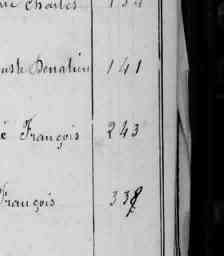 Charles 134
Donatien 141
François 243
François 338